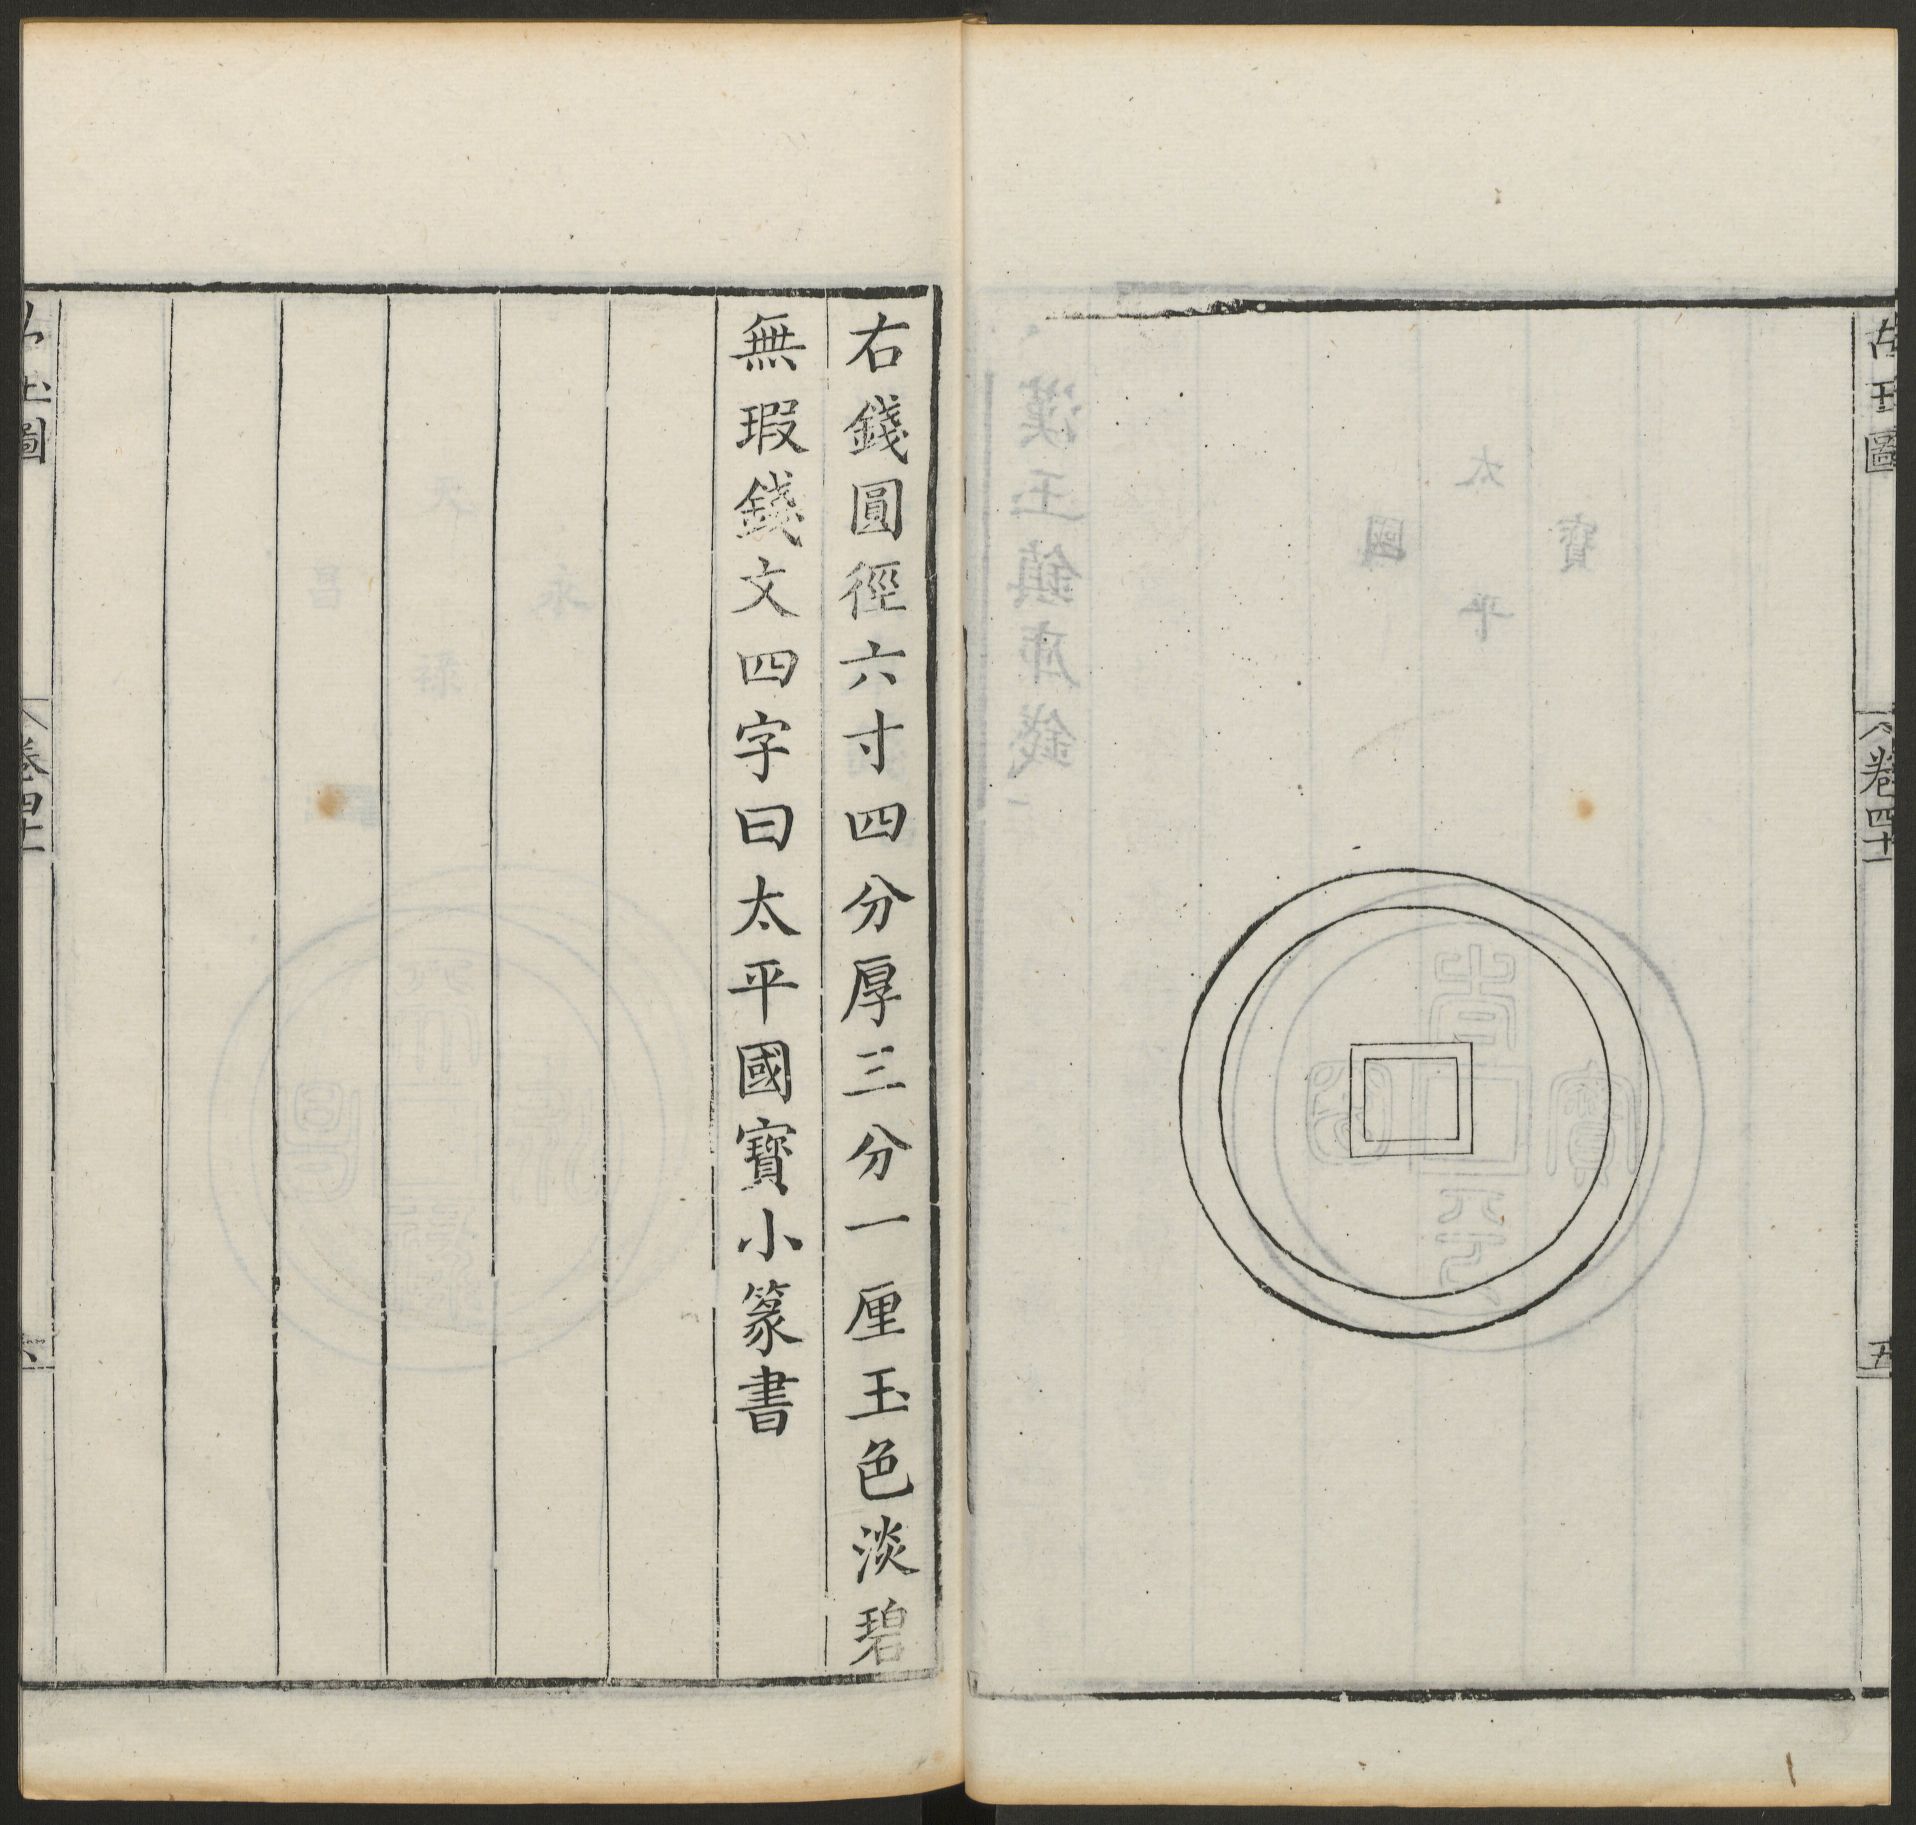 古玉圖
卷四十一
五
右錢圓徑六寸四分厚三分一厘玉色淡碧
無瑕錢文四字曰太平國寶小篆書
古玉圖
卷四十一
六